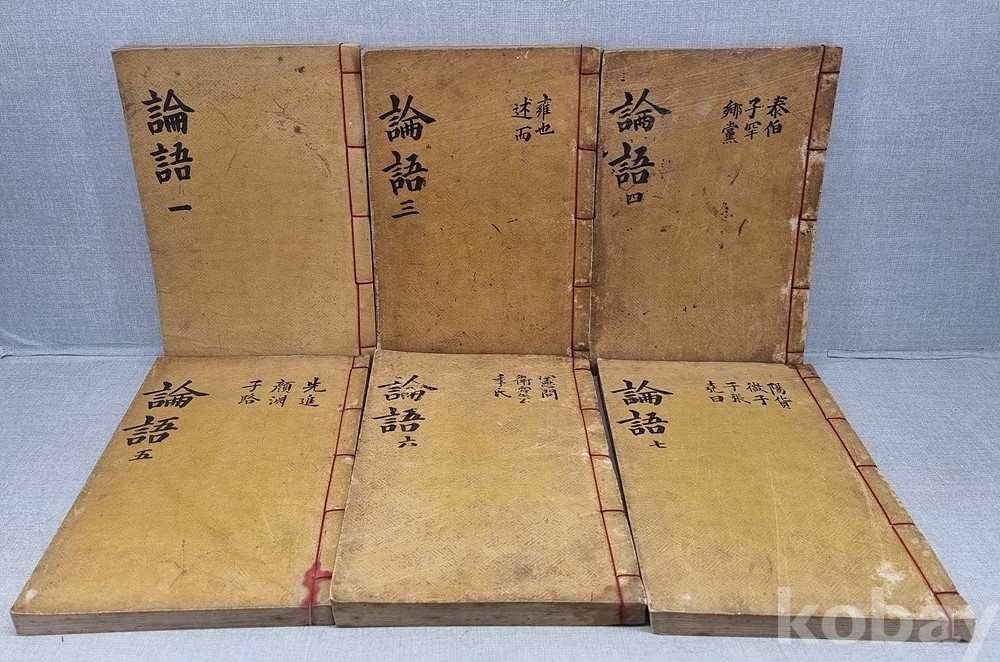 論語 一
論語 三
雍也
述而
論語 四
泰伯
子罕
鄕黨
論語 五
先進
顏淵
子路
論語 六
憲問
衛靈公
季氏
論語 七
陽貨
微子
子張
堯曰
kobay